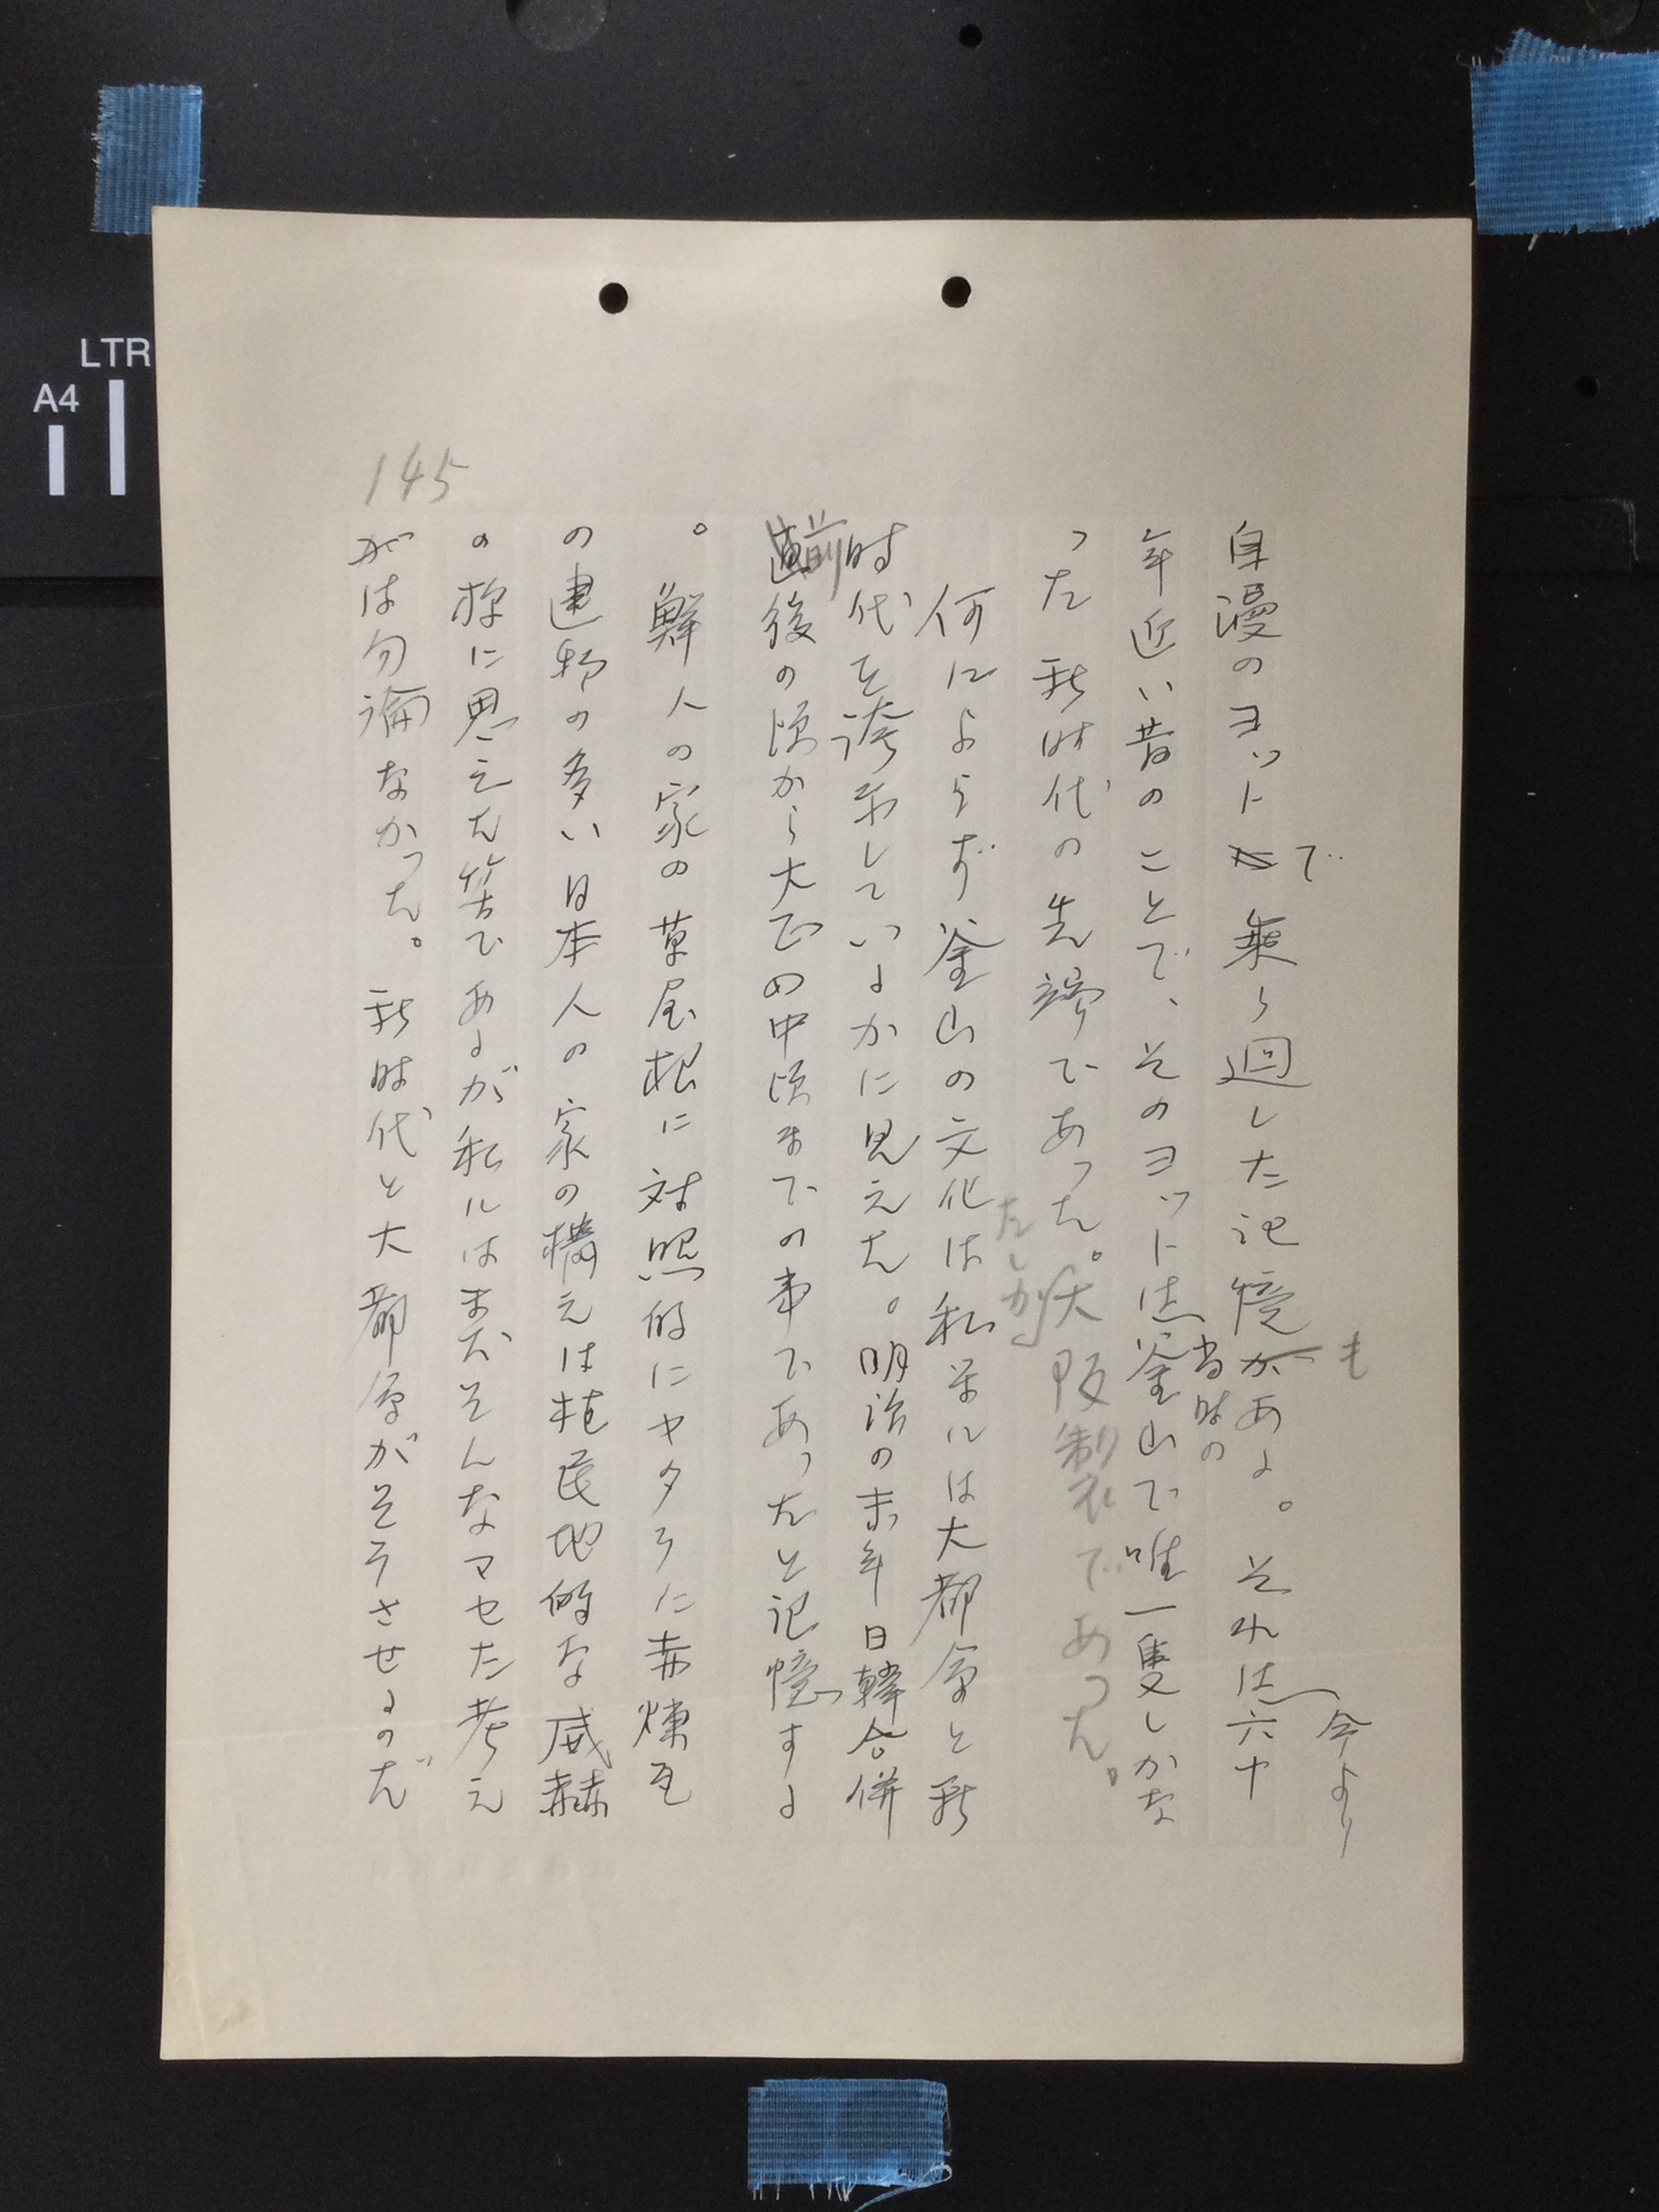 自漫のヨットで乗り廻した記憶もある。それは今より六十
年近い昔のことで、そのヨットは当時の釜山で唯一隻しかな
った新時代の先端であった。たしか大阪製であった。
何によらず釜山の文化は私等には大都会と新
時代を誇示しているかに見えた。明治の末年日韓合併
前後の頃から大正の中頃までの事であったと記憶する
。鮮人の家の草屋根に対照的にヤタラに赤煉瓦
の建物の多い日本人の家の構えは植民地的な威赫
の様に思えた筈であるが私には まだそんなマセた考え
がは勿論なかった。新時代と大都会がそうさせるのだ
145
A4
LTR